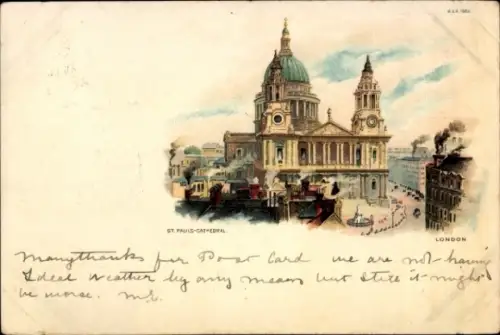 ST. PAULS-CATHEDRAL.
LONDON
Many thanks for Post Card we are not having
Ideal weather by any means but still it might
be worse.